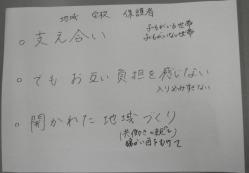 地域 学校 保護者
○ 支え合い
子どもがいる世帯
子どもがいない世帯
○ でもお互い負担を感じない
入り込みすぎない
○ 開かれた地域づくり
(共働きの親も)